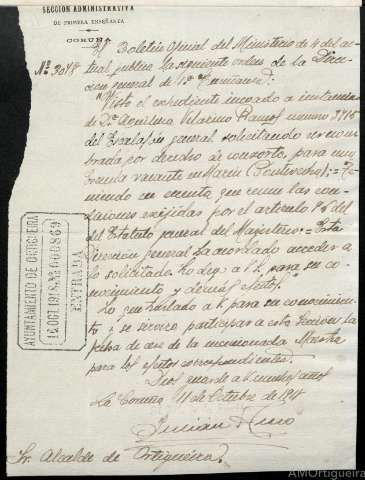 SECCIÓN ADMINISTRATIVA
DE PRIMERA ENSEÑANZA
CORUÑA
Nº 3078
El Boletín Oficial del Ministerio de 4 del ac-
tual publica la siguiente orden de la Direc-
cion general de 1ª enseñanza:
"Visto el expediente incoado a instancia
de Dª Vilarino Ramos numero 3715
del Escalafón general solicitando ser nom-
brada por derecho de consorte, para una
vacante en Marin (Pontevedra); = Te-
niendo en cuenta que reune las con-
diciones exigidas por el articulo
del Estatuto general del Magisterio = Esta
Direccion general ha acordado acceder a
lo solicitado. Lo digo a V. para su co-
nocimiento y demás efectos"
Lo que traslado a V. para su conocimien-
to y se servirá participar a esta Sección la
fecha de cese de la mencionada Maestra
para los efectos correspondientes.
Dios guarde a V. muchos años
La Coruña 11 de Octubre de
Sr. Alcalde de Ortigueira.
AYUNTAMIENTO DE ORTIGUEIRA
ENTRADA
AMOrtigueira